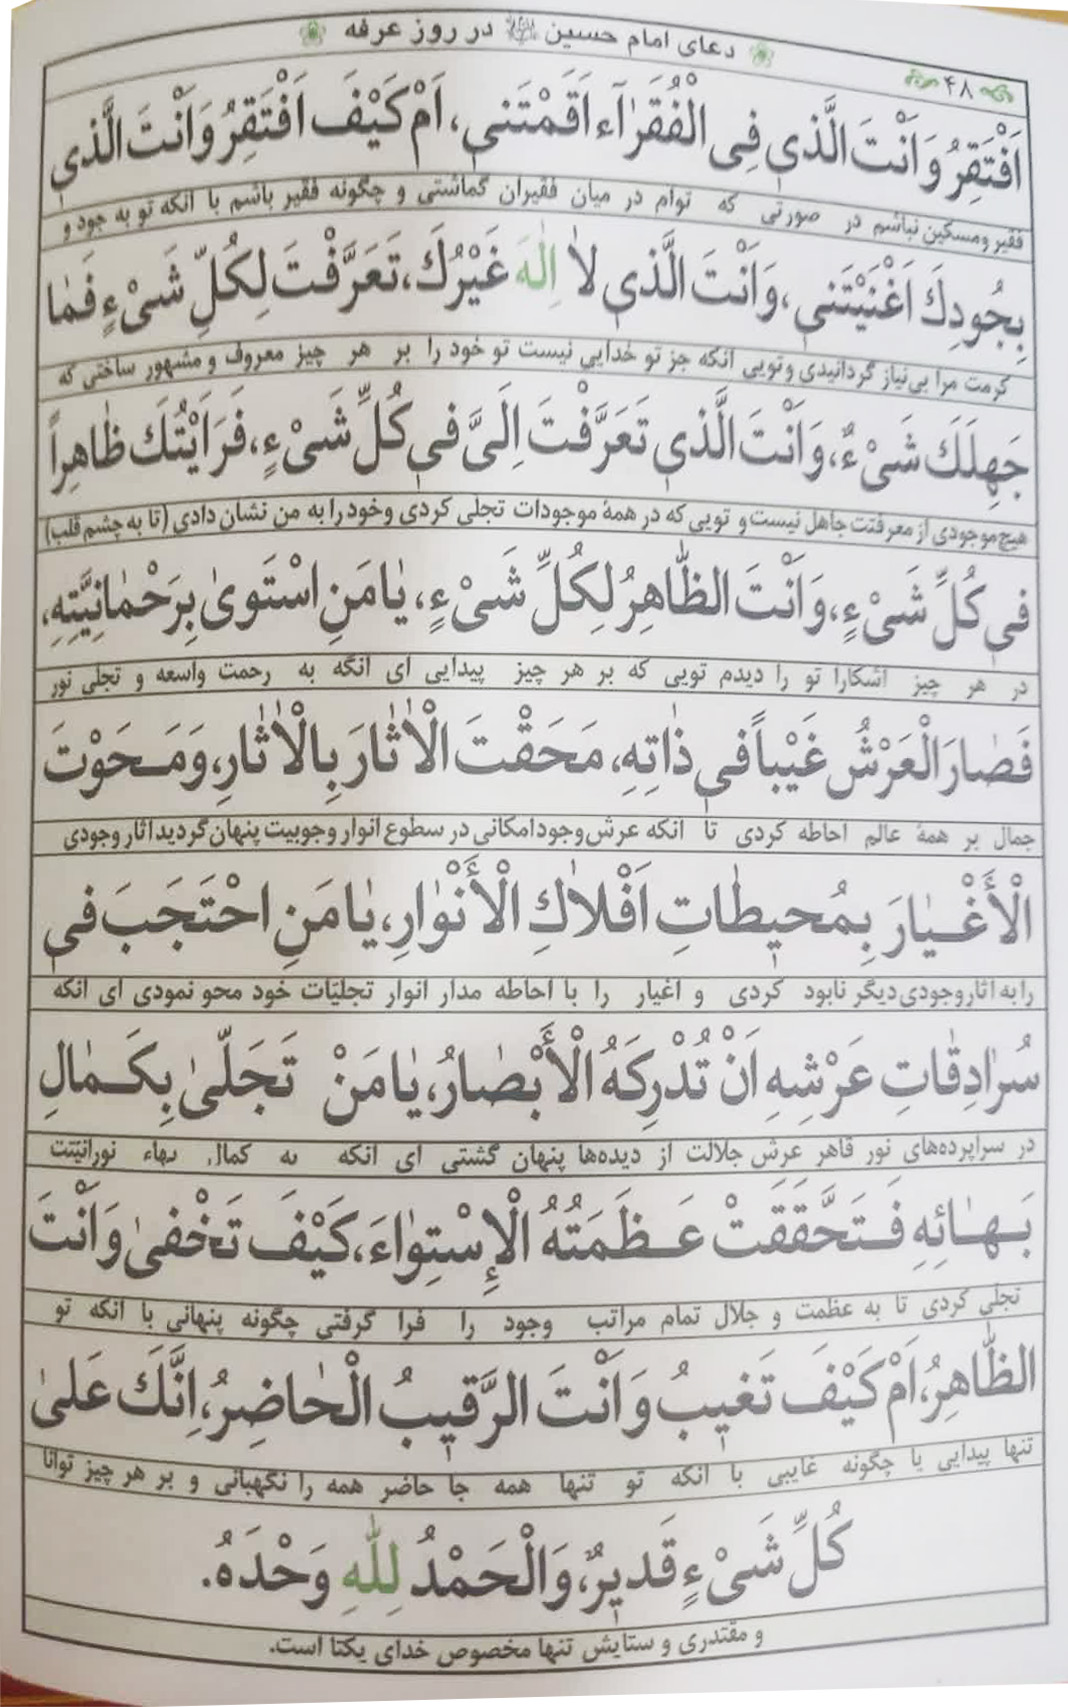 دعای امام حسین در روز عرفه
۴۸
اَفْتَقِرُ وَاَنْتَ الَّذی فِی الْفُقَرٰآءِ اَقَمْتَنی، اَمْ كَيْفَ اَفْتَقِرُ وَاَنْتَ الَّذی
فقیر ومسکین نباشم در صورتی که توام در میان فقیران گماشتی و چگونه فقیر باشم با آنکه تو به جود و
بِجُودِكَ اَغْنَيْتَنی، وَاَنْتَ الَّذی لاٰ اِلٰهَ غَيْرُكَ، تَعَرَّفْتَ لِكُلِّ شَیْءٍ فَمٰا
کرمت مرا بی‌نیاز گردانیدی و تویی آنکه جز تو خدایی نیست تو خود را بر هر چیز معروف و مشهور ساختی که
جَهِلَكَ شَیْءٌ، وَاَنْتَ الَّذی تَعَرَّفْتَ اِلَیَّ فی كُلِّ شَیْءٍ، فَرَاَيْتُكَ ظٰاهِراً
هیچ موجودی از معرفتت جاهل نیست و تویی که در همهٔ موجودات تجلی کردی و خود را به من نشان دادی (تا به چشم قلب)
فی كُلِّ شَیْءٍ، وَاَنْتَ الظّٰاهِرُ لِكُلِّ شَیْءٍ، يٰا مَنِ اسْتَوىٰ بِرَحْمٰانِيَّتِهِ،
در هر چیز آشکارا تو را دیدم تویی که بر هر چیز پیدایی ای آنکه به رحمت واسعه و تجلی نور
فَصٰارَ الْعَرْشُ غَيْباً فی ذٰاتِهِ، مَحَقْتَ الْاٰثٰارَ بِالْاٰثٰارِ، وَمَحَوْتَ
جمال بر همهٔ عالم احاطه کردی تا آنکه عرش وجود امکانی در سطوع انوار وجوبیت پنهان گردید آثار وجودی
الْأَغْيٰارَ بِمُحيطٰاتِ اَفْلاٰكِ الْأَنْوٰارِ، يٰا مَنِ احْتَجَبَ فی
را به آثار وجودی دیگر نابود کردی و اغیار را با احاطه مدار انوار تجلیّات خود محو نمودی ای آنکه
سُرٰادِقٰاتِ عَرْشِهِ اَنْ تُدْرِكَهُ الْأَبْصٰارُ، يٰا مَنْ تَجَلّىٰ بِكَمٰالِ
در سراپرده‌های نور قاهر عرش جلالت از دیده‌ها پنهان گشتی ای آنکه به کمال بهاء نورانیّتت
بَهٰائِهِ فَتَحَّقَقَتْ عَظَمَتُهُ الْإِسْتِوٰاءَ، كَيْفَ تَخْفىٰ وَاَنْتَ
تجلی کردی تا به عظمت و جلال تمام مراتب وجود را فرا گرفتی چگونه پنهانی با آنکه تو
الظّٰاهِرُ، اَمْ كَيْفَ تَغيبُ وَاَنْتَ الرَّقيبُ الْحٰاضِرُ، اِنَّكَ عَلىٰ
تنها پیدایی یا چگونه غایبی با آنکه تو تنها همه جا حاضر همه را نگهبانی و بر هر چیز توانا
كُلِّ شَیْءٍ قَديرٌ، وَالْحَمْدُ لِلّٰهِ وَحْدَهُ.
و مقتدری و ستایش تنها مخصوص خدای یکتا است.